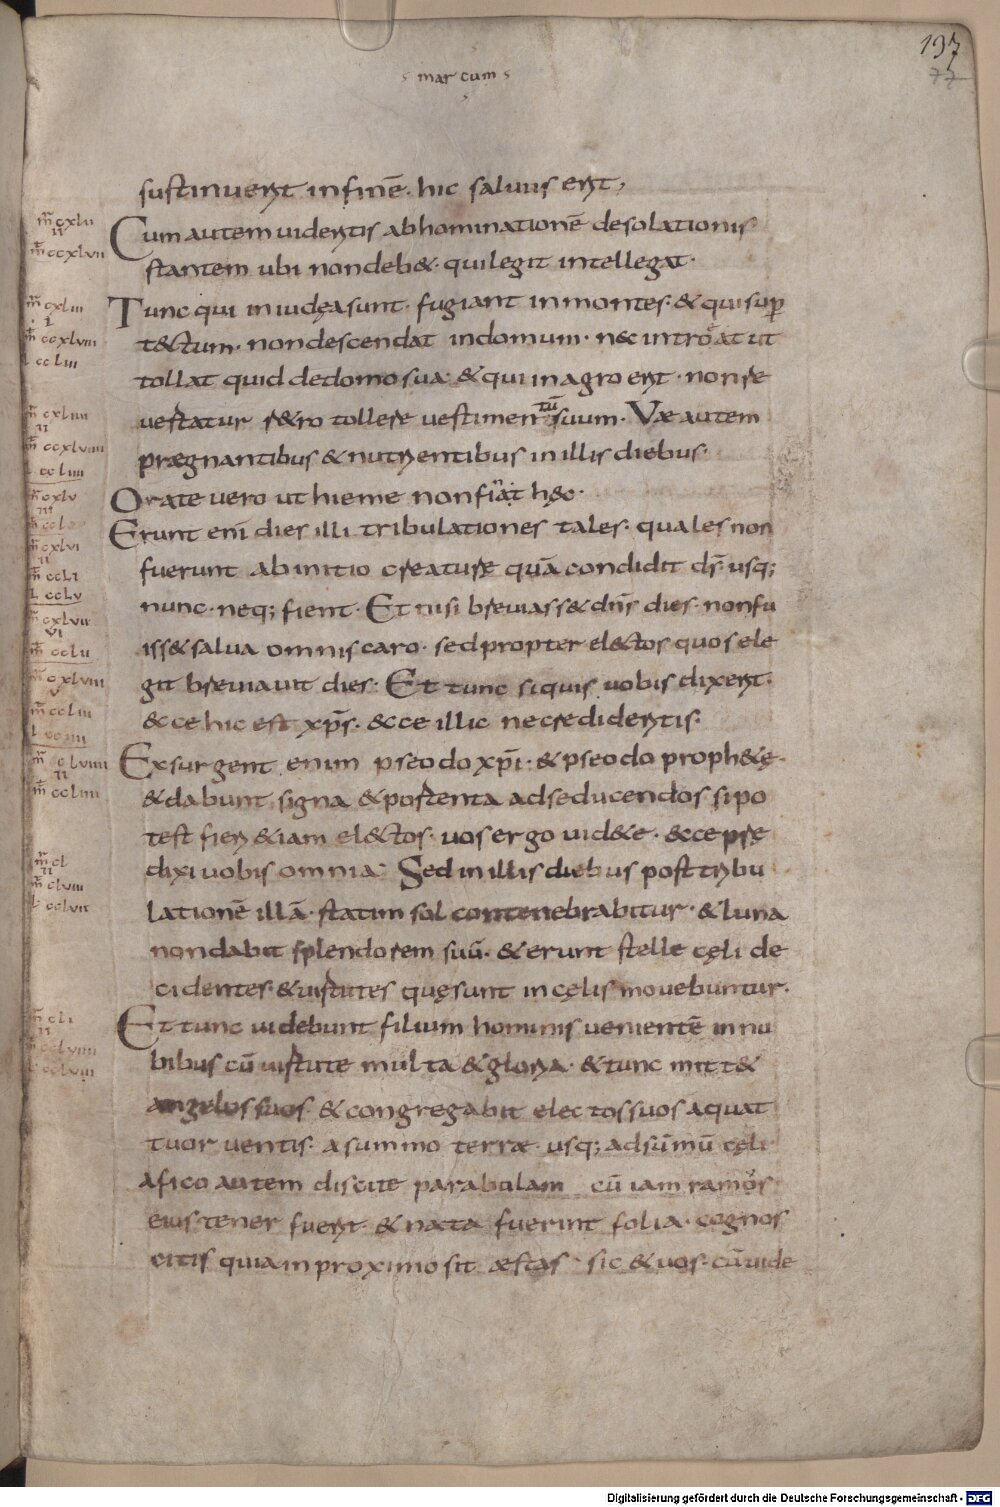 137
77
marcum
sustinuerit in finē. hic saluus erit,
Cum autem uideritis abhominationē desolationis
stantem ubi non deb&. qui legit intellegat.
Tunc qui in iudęa sunt. fugiant in montes. & qui sup
t&ctum. non descendat in domum. nec introeat ut
tollat quid de domo sua & qui in agro erit. non re
uertatur r&ro tollere uestimentū suum. Væ autem
prægnantibus & nutrientibus in illis diebus.
Orate uero ut hieme non fiant hęc.
Erunt enī dies illi tribulationes tales. quales non
fuerunt ab initio creature quā condidit ds̄. usq;
nunc. neq; fient. Et nisi breuiass& dn̄s dies. non fu
iss& salua omnis caro. sed propter el&ctos quos ele
git breuiauit dies. Et tunc si quis uobis dixerit.
&ce hic est xp̄s. &ce illic ne credideritis.
Exsurgent enim pseodo xp̄i. & pseodo proph&ę.
& dabunt signa & portenta ad seducendos si po
test fieri &iam el&ctos. uos ergo uid&e. &ce pre
dixi uobis omnia. Sed in illis diebus post tribu
lationē illā. statim sol contenebrabitur. & luna
non dabit splendorem suū. & erunt stelle cęli de
cidentes. & uirtutes quę sunt in cęlis mouebuntur.
Et tunc uidebunt filium hominis uenientē in nu
bibus cū uirtute multa & gloria. & tunc mitt&
angelos suos. & congregabit electos suos a quat
tuor uentis. a summo terræ. usq; ad sūmū cęli.
a fico autem discite parabulam cū iam ramos
eius tener fuerit & nata fuerint folia. cognos
citis quia in proximo sit æstas. sic & uos. cū uide
m̄ cxlii
ii
m̄ ccxlvii
m̄ cxliii
i
m̄ ccxlviii
l ccliii
m̄ cxliiii
ii
m̄ ccxlviiii
l ccliiii
cxlv
m̄ cxlvi
ii
m̄ ccli
l cclv
m̄ cxlvii
vi
m̄ cclii
m̄ cxlviii
v
m̄ ccliii
m̄ cxlviiii
ii
m̄ ccliiii
m̄ cl
ii
m̄ clviii
l cclvii
m̄ cli
ii
Digitalisierung gefördert durch die Deutsche Forschungsgemeinschaft - DFG